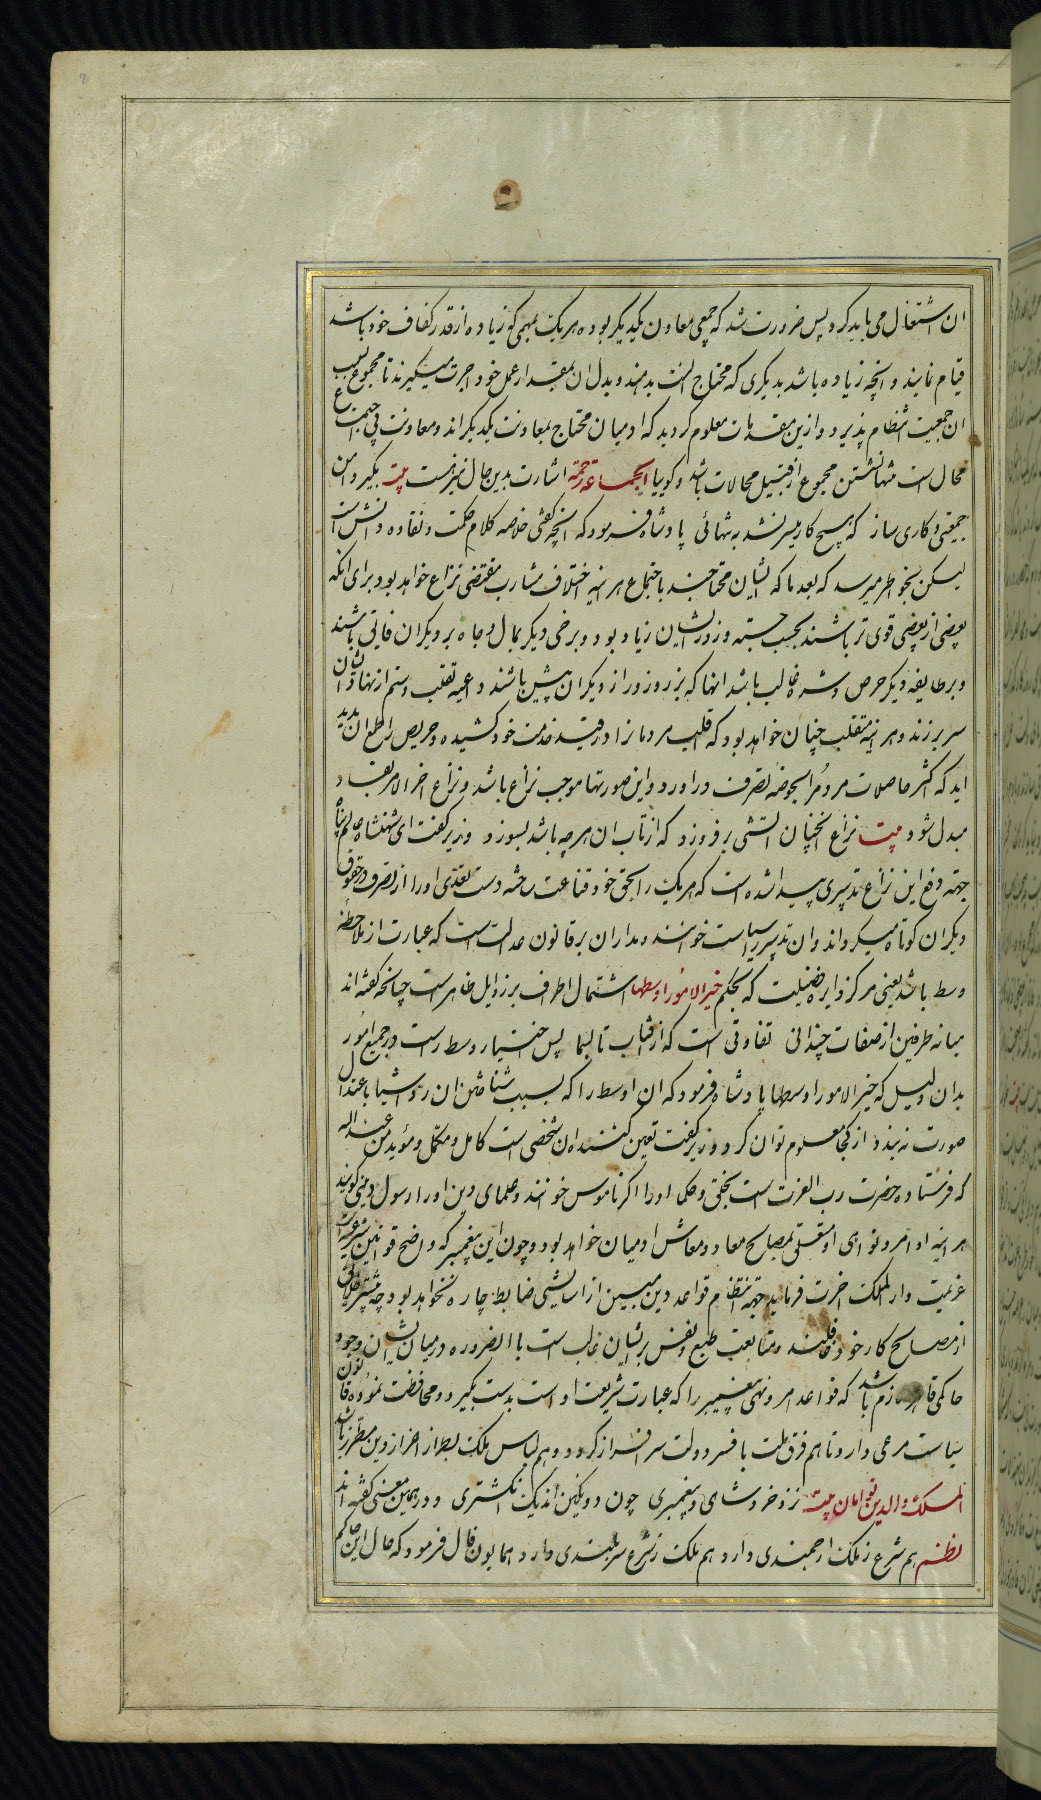 ان اشتغال می باید کرد پس ضرورت شد که جمعی معاون یکدیگر بوده هریک بمهمی که زیاده از قدر کفاف خود باشد
قیام نمایند و انچه زیاده باشد بدیگری که محتاج انست بدهند و بدل ان بمقدار عمل خود اجرت میگیرند تا مجموع بسبب
ان جمعیت انتظام پذیرد و ازین مقدمات معلوم گردید که ادمیان محتاج بمعاونت یکدیگر اند و معاونت بی اجتماع
محال است تنها نشستن مجموع از قبیل محالات باشد و گوییا الجماعة رحمة اشارت بدین حال نیز هست بیت بگیر دامن
جمعیتی و کاری ساز که هیچ کار میسر نشد به تنهائی پادشاه فرمود که انچه گفتی خلاصه کلام حکمت و نقاوه دانش است
لیکن بخواطر میرسد که بعد ما که ایشان محتاجند باجتماع هر اینه اختلاف مشارب مقتضی نزاع خواهد بود برای انکه
بعضی از بعضی قوی تر باشند بحسب جسته و زور ایشان زیاد بود و برخی دیگر بمال و جاه بر دیگران فایق باشند
و بر طایفه دیگر حرص و شره غالب باشد انها که بزر و زور از دیگران پیش باشند داعیه تغلب و ستم از نهاد ایشان
سر بر زند و هر اینه متغلب چنان خواهد بود که اغلب مردمانرا در قید خدمت خود کشیده و حریص را طمع ان پدید
اید که اکثر حاصلات مردم را بحوضه تصرف دراورد و این صورتها موجب نزاع باشد و نزاع اخر الامر بفساد
مبدل شود بیت نزاع انچنان اتشی برفروزد که از تاب ان هرچه باشد بسوزد وزیر گفت ای شهنشاه عالم پناه
جهة دفع این نزاع تدبیری پیدا شده است که هریک را بحق خود قناعت بخشد دست تعدی اورا از تصرف در حقوق
دیگران کوتاه میگرداند و ان تدبیر را سیاست خوانند و مدار ان بر قانون عدالت است که عبارت از ملاحظه
وسط باشد یعنی مرکز دایره فضیلت که بحکم خیر الامور اوسطها اشتمال اطراف بر رذایل ظاهرست چنانچه گفته اند
میانه طرفین از صفات چندانی تفاوتی است که از افتاب تا بسها پس اختیار وسط راست در جمیع امور
بدان دلیل که خیر الامور اوسطها پادشاه فرمود که ان اوسط را که بسبب شناختن ان اشیا باعتدال
صورت بندد از کجا معلوم توان کرد وزیر گفت تعین کننده ان شخصی است کامل و مکمل و مؤید من عند الله
که فرستاده حضرت رب العزت است بخلق و حکما اورا اکبر ناموس خوانند و علمای دین اورا رسول و نبی گویند
هر اینه اوامر و نواهی او متعلق بمصالح معاد و معاش ادمیان خواهد بود و چون این پیغمبر که واضع قوانین شریعت است
عزیمت دار الملک اخرت فرماید جهة انتظام قواعد دین مبین از سایسی ضابط چاره نخواهد بود چه بیشتر خلایق
از مصالح کار خود غافلند و متابعت طبع و نفس بر ایشان غالب است باالضروره در میان ایشان وجود
حاکمی قاهر لازم باشد که قواعد امر و نهی پیغمبر را که عبارت شریعت او است بدست گیرد و محافظت نموده قانون
سیاست مرعی دارد تا هم فرق ملت بافسر دولت سرافراز گردد و هم لباس ملک بطراز اعزاز دین مطرز باشد
الملک والدین توامان بیت نزد خرد شاهی و پیغمبری چون دو نگین اند یک انگشتری و در همین معنی گفته اند
نظم هم شرع ز ملک ارجمندی دارد هم ملک ز شرع سربلندی دارد همایون فال فرمود که حال این حاکم